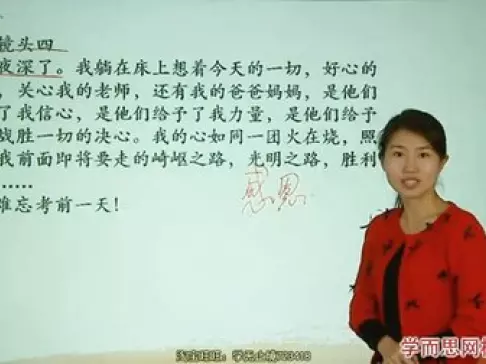 镜头四
夜深了。我躺在床上想着今天的一切，好心的
，关心我的老师，还有我的爸爸妈妈，是他们
了我信心，是他们给予了我力量，是他们给予
战胜一切的决心。我的心如同一团火在烧，照
我前面即将要走的崎岖之路，光明之路，胜利
……
感恩
难忘考前一天！
学而思网